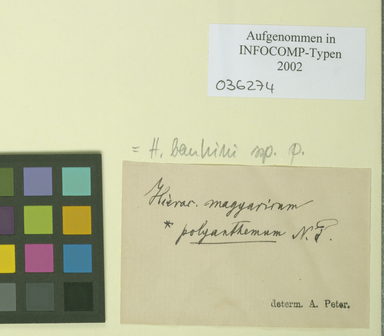 Aufgenommen in
INFOCOMP-Typen
2002
036274
= H. bauhini sp. p.
Hierac. magyaricum
* polyanthemum N. P.
determ. A. Peter.